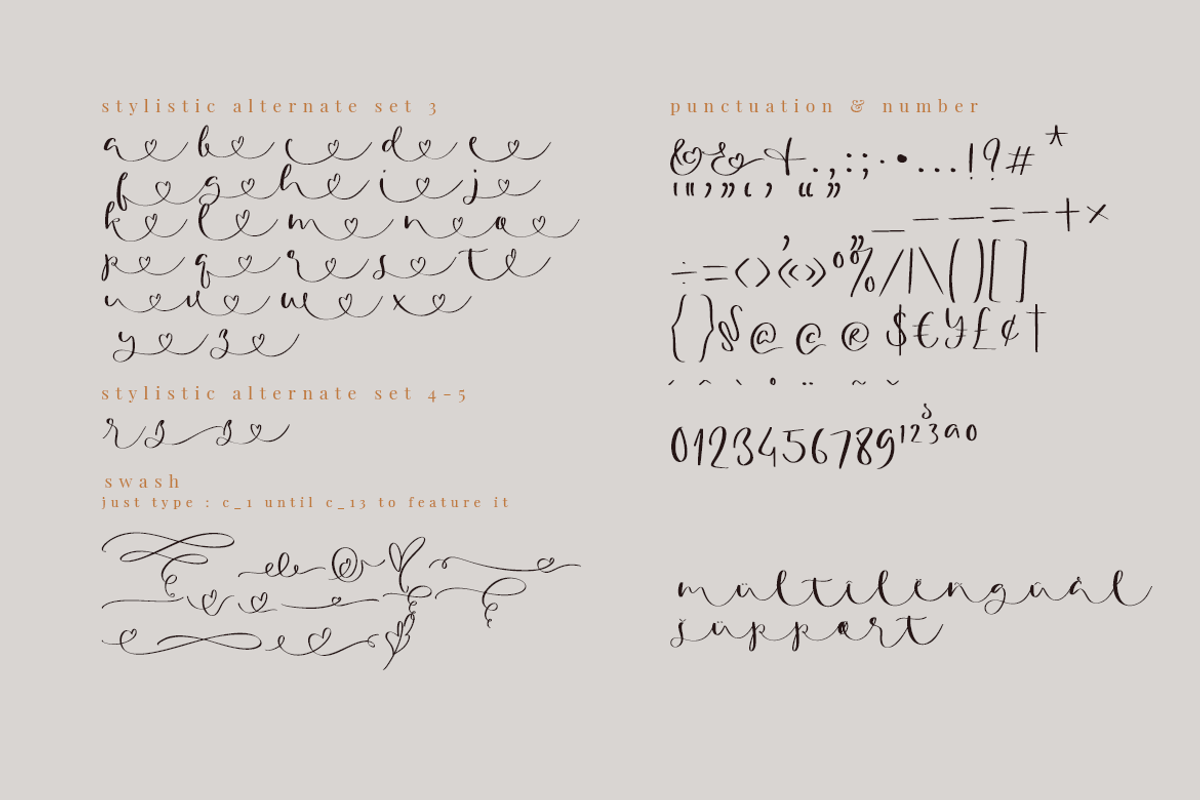 stylistic alternate set 3
a b c d e
f g h i j
k l m n o
p q r s t
u v w x
y z
stylistic alternate set 4-5
r s s
swash
just type : c_1 until c_13 to feature it
punctuation & number
& & + . , : ; · • ... ! ? # *
' " ‚ „ ‘ ’ “ ”
_ – — = - + ×
÷ = ‹ › « » ° % / | \ ( ) [ ]
{ } § @ © ® $ € ¥ £ ¢ †
´ ˆ ` ˚ ¨ ˜ ˇ
0123456789 1 2 3 a o
multilingual
support